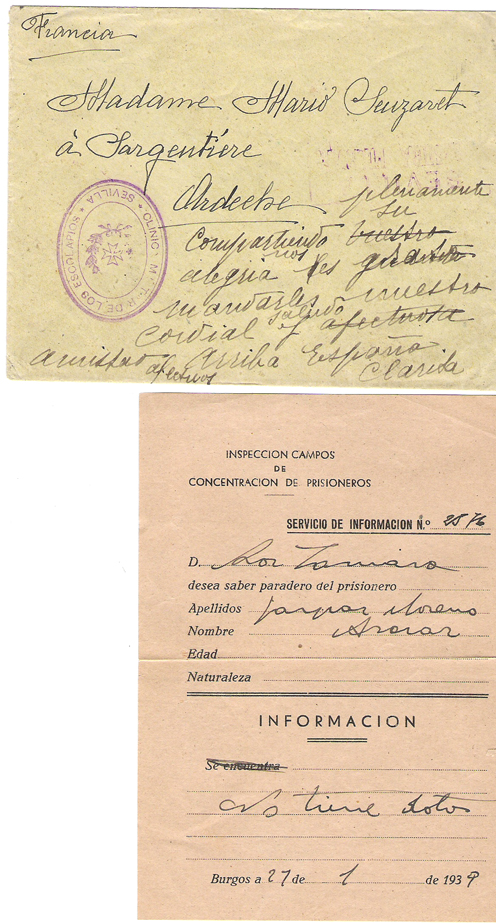 Francia
Madame Mario Seuzaret
à Largentiére
Ardeche
plenamente
su
compartiendo vuestro
nos
alegria les
mandarles nuestro
saludo
cordial y afectuosa
amistad Arriba España
afectivos Clarita
CLINIC MILITAR DE LOS ESCOLAPIOS * SEVILLA *
INSPECCION CAMPOS
DE
CONCENTRACION DE PRISIONEROS
SERVICIO DE INFORMACION N.º 2876
D.
desea saber paradero del prisionero
Apellidos Gaspar Moreno
Nombre
Edad
Naturaleza
INFORMACION
Se encuentra
No tiene datos
Burgos a 27 de 1 de 1939